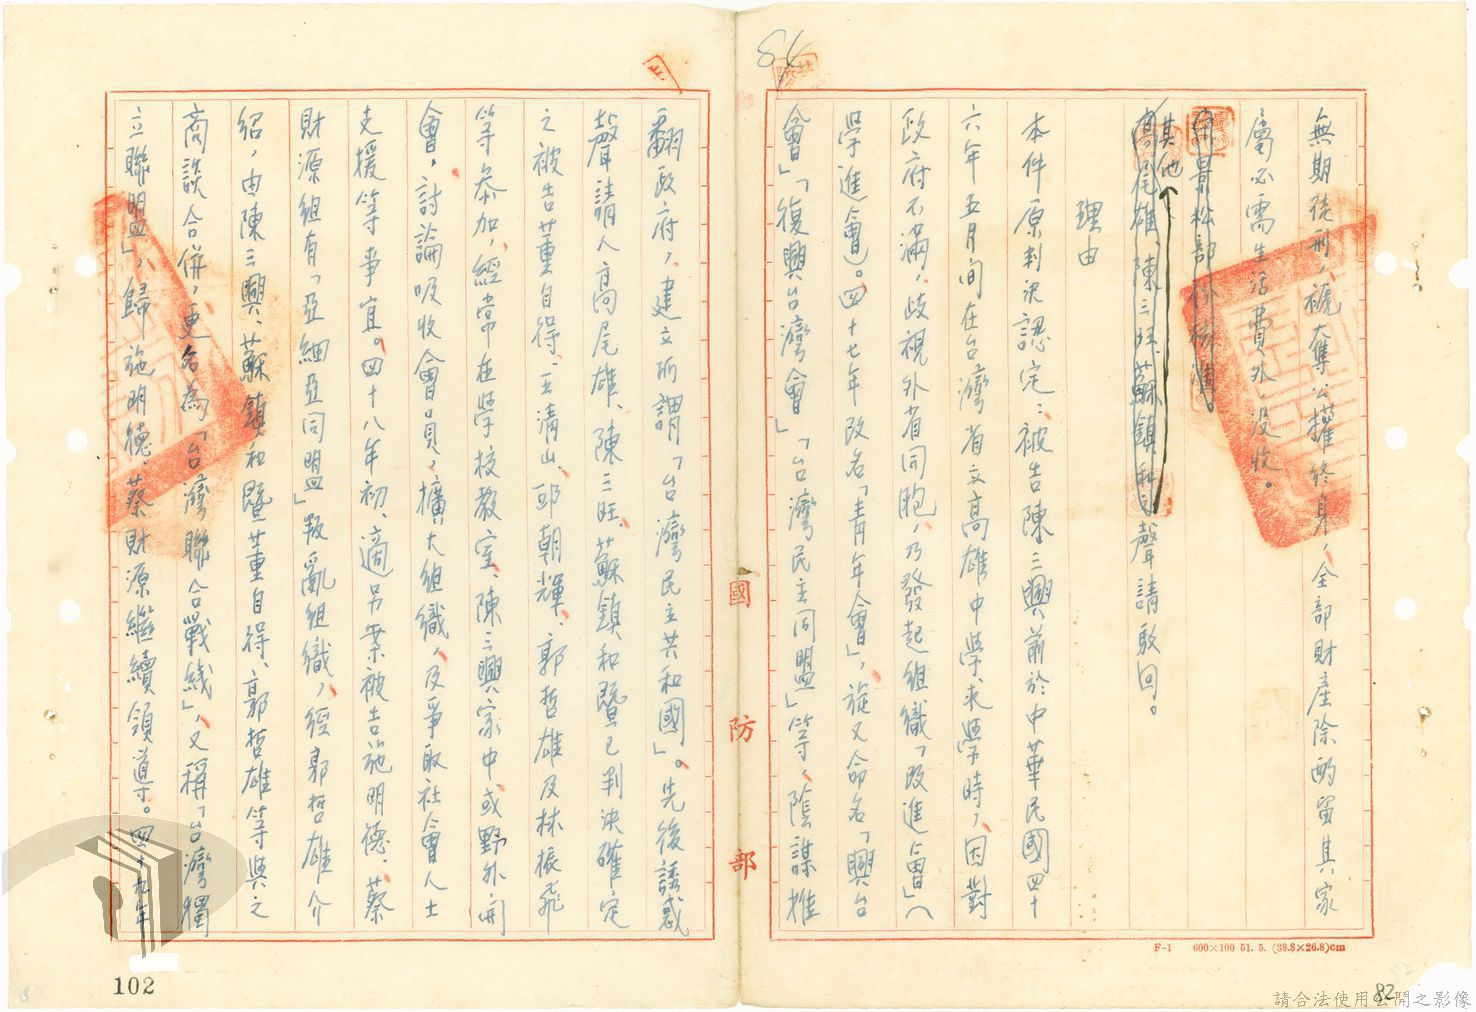 無期徒刑,褫奪公權終身,全部財產除酌留其家
屬必需生活費外,沒收。
宋景松部份核准。
其他
高尾雄、陳三旺、蘇鎮和之聲請駁回。
理由
本件原判決認定:被告陳三興前於中華民國四十
六年五月間在台灣省立高雄中學求學時,因對
政府不滿,歧視外省同胞,乃發起組織「改進會」(
學進會)。四十七年改名「青年會」,旋又命名「興台
會」「復興台灣會」「台灣民主同盟」等,陰謀推
翻政府,建立所謂「台灣民主共和國」。先後誘惑
聲請人高尾雄、陳三旺、蘇鎮和暨已判決確定
之被告董自得、王清山、邱朝輝、郭哲雄及林振飛
等參加,經常在學校教室、陳三興家中或野外開
會,討論吸收會員,擴大組織,及爭取社會人士
支援等事宜。四十八年初,適另案被告施明德、蔡
財源組有「亞細亞同盟」叛亂組織,經郭哲雄介
紹,由陳三興、蘇鎮和暨董自得、郭哲雄等與之
商談合併,更名為「台灣聯合戰线」,又稱「台灣獨
立聯盟」,歸施明德、蔡財源繼續領導。四十九年
國防部
F-1 600×100 51. 5. (38.8×26.8)cm
102
82
請合法使用公開之影像